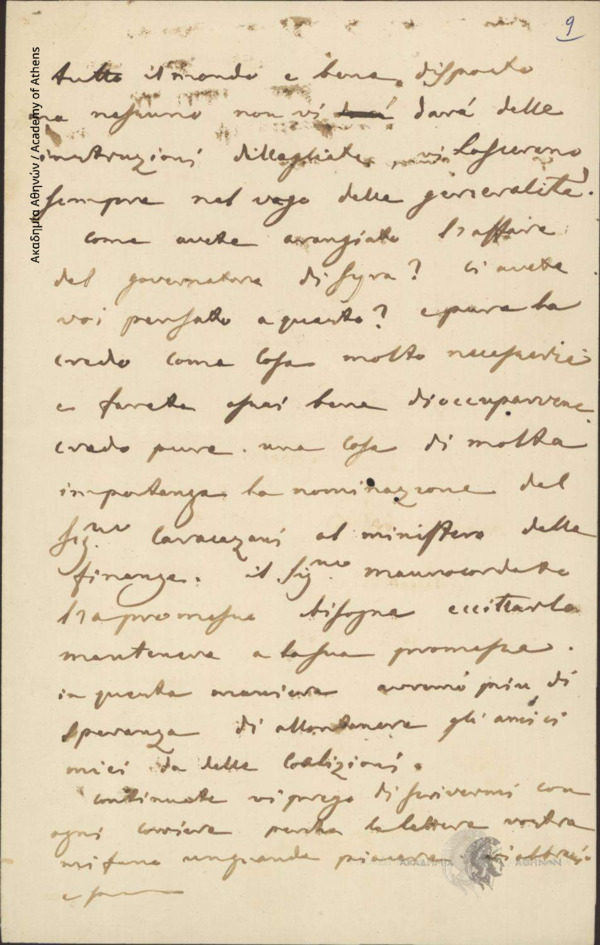 9
tutto il mondo e bene disposto
ma nessuno non vi darà delle
instruzioni dillagliate, vi lascierano
sempre nel vago delle generalità.
come avete arangiato l'affaire
del governatore di Syra? ci avete
voi pensato a questo? epure la
credo come cosa molto necessaria
e farete assai bene di occuparvene
credo pure una cosa di molta
importanza la nominazione del
Sig.no Caracazani al ministero delle
finanze. il Sig.no Maurocordato
l'a promessa bisogna eccittarlo
mantenere a la sua promessa.
in questa maniera avremo più di
speranza di allontanare gli amici
mici da delle Coalizioni.
Continuate vi prego di scrivermi con
ogni corriere perche la lettera vostra
mi fano un grande piacere
Ακαδημία Αθηνών / Academy of Athens
ΑΚΑΔΗΜΙΑ ΑΘΗΝΩΝ